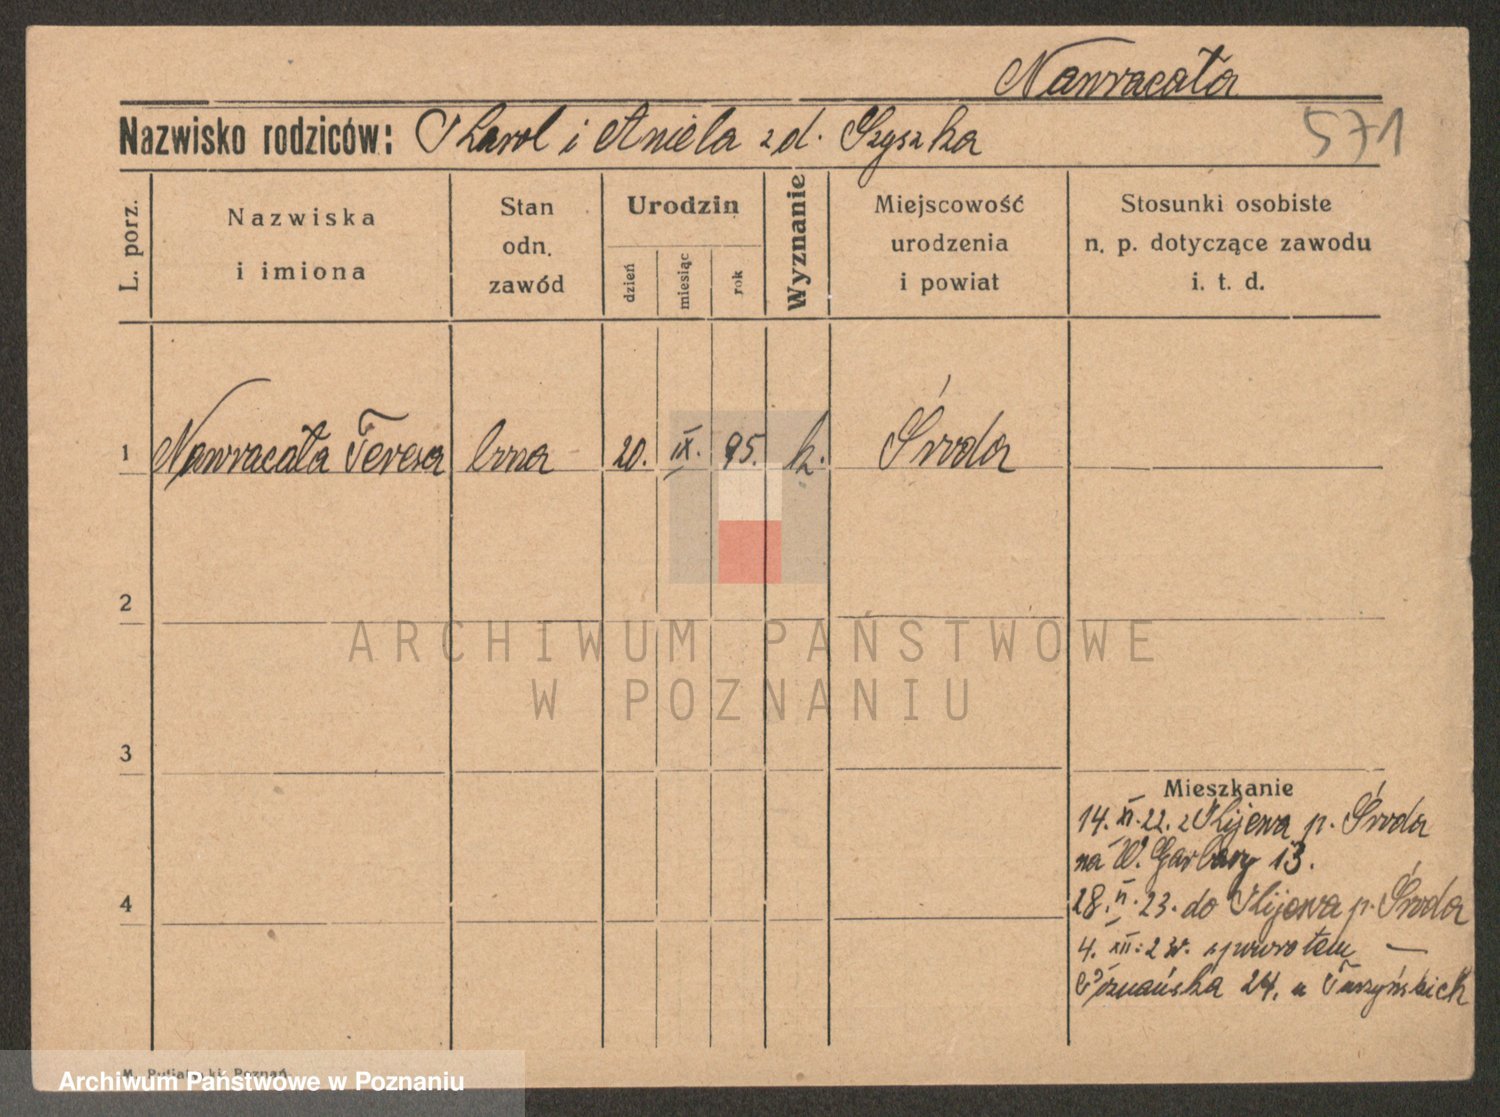 Nawracała
Nazwisko rodziców: Karol i Aniela z d. Szyszka
571
L. porz.
Nazwiska
i imiona
Stan
odn.
zawód
Urodzin
dzień
miesiąc
rok
Wyznanie
Miejscowość
urodzenia
i powiat
Stosunki osobiste
n. p. dotyczące zawodu
i. t. d.
1 Nawracała Teresa 20. IX. 95. k. Środa
2
3
4
Mieszkanie
14. XI. 22. z Kijewa p. Środa
na W. Garbary 13.
28. 23. do Kijewa p. Środa
4. XII. 23. spowrotem —
Poznańska 24. u
ARCHIWUM PAŃSTWOWE
W POZNANIU
Poznań
Archiwum Państwowe w Poznaniu